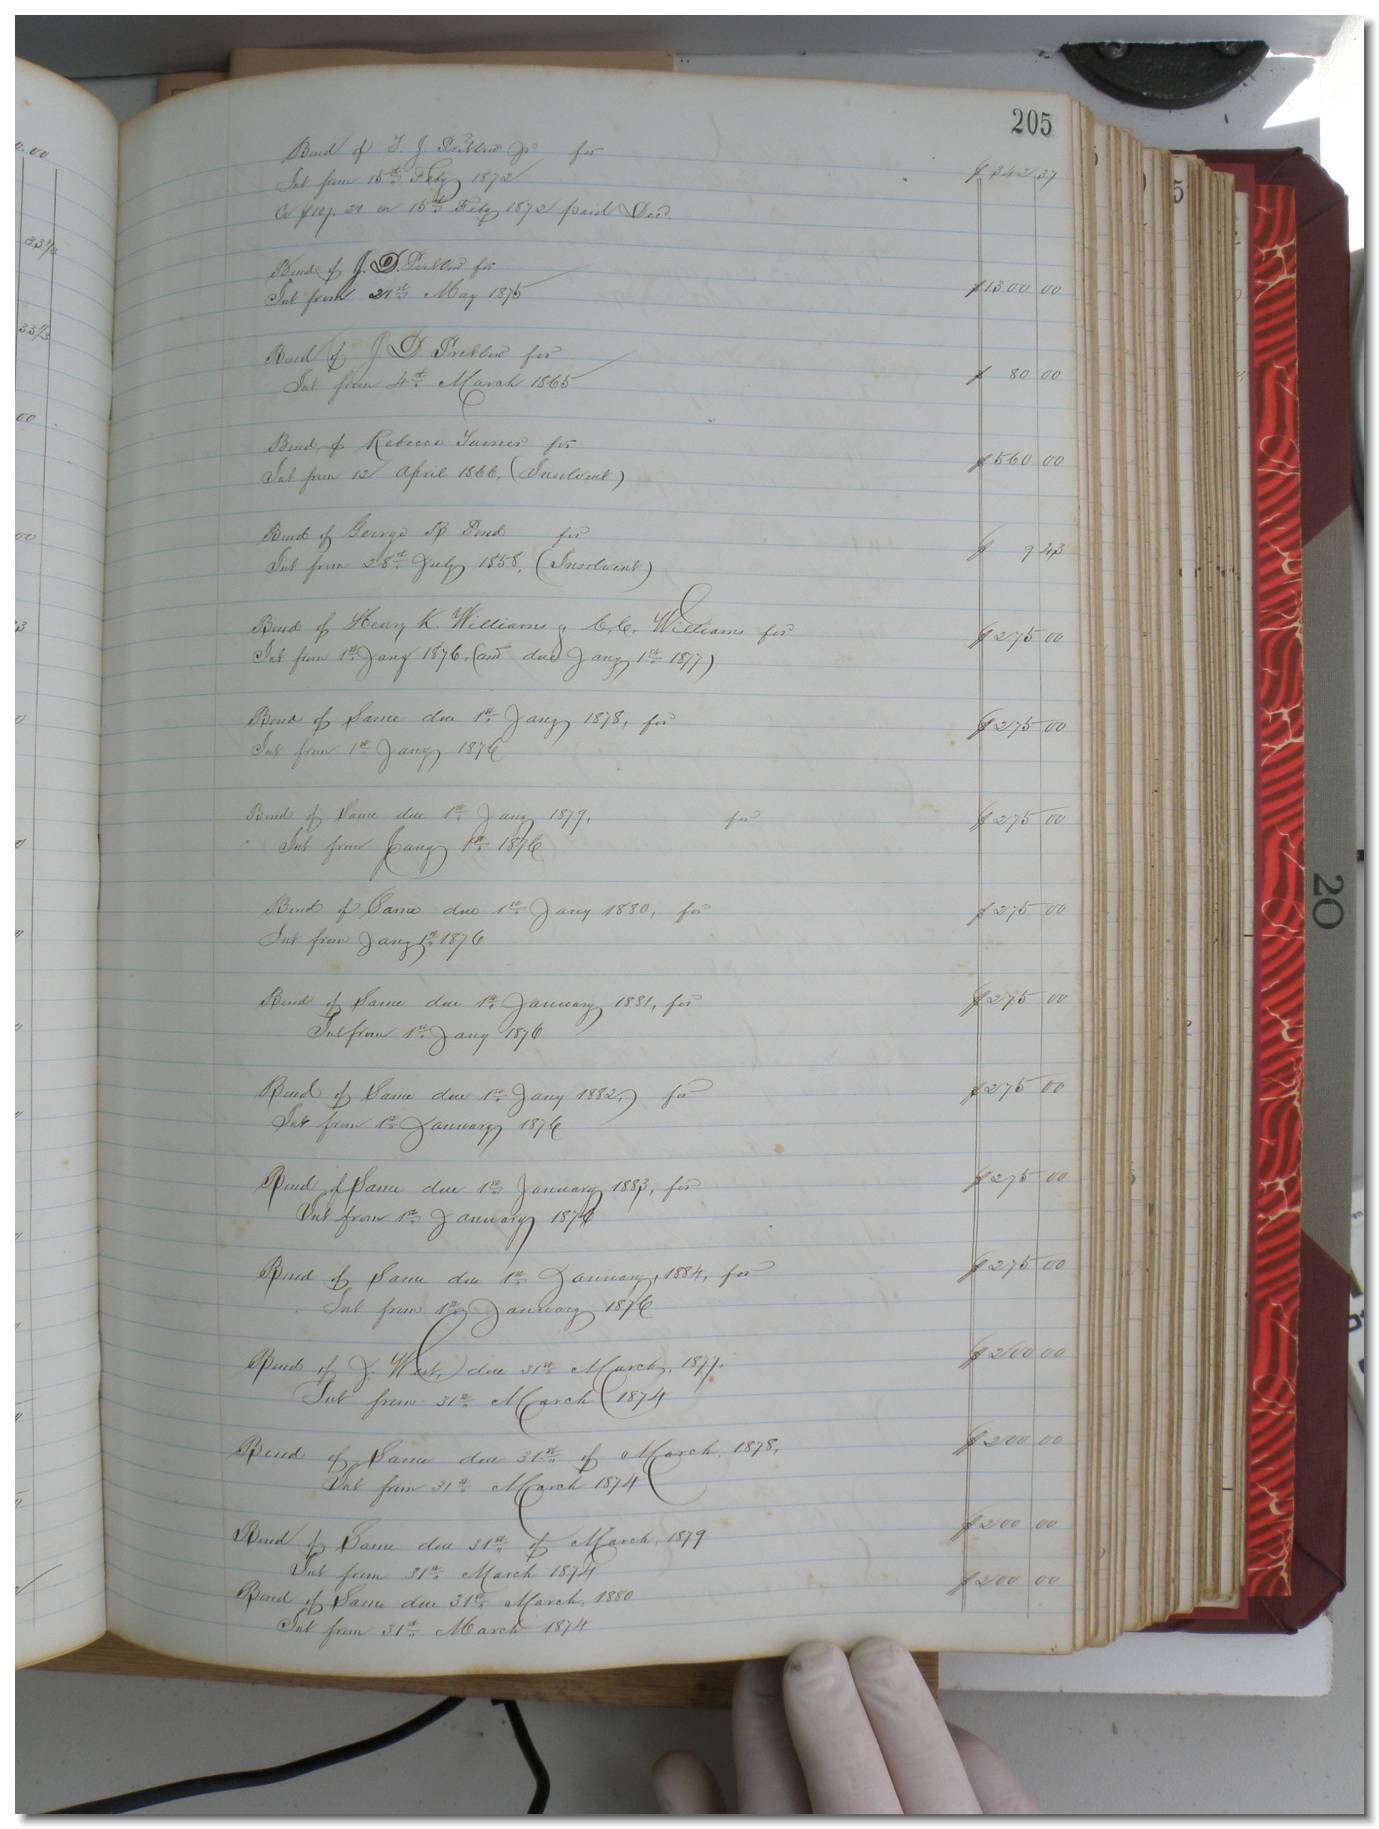 205
Bond of T. J. Pretlow Jr for
Int from 15th Feby 1872 $342 37
Cr $107. 21 on 15th Feby 1872 paid
Bond of J. D. Pretlow for
Int from 27th May 1875 $1300 00
Bond of J. D. Pretlow for
Int from 4th March 1865 $ 80 00
Bond of Rebecca Turner for
Int from 12 April 1866. (Insolvent) $560 00
Bond of George for
Int from 28th July 1858. (Insolvent) $ 9 43
Bond of Henry K. Williams & C. C. Williams for
Int from 1st Jany 1876. (and due Jany 1st 1877) $275 00
Bond of Same due 1st Jany 1878, for
Int from 1st Jany 1876 $275 00
Bond of Same due 1st Jany 1879, for
Int from Jany 1st 1876 $275 00
Bond of Same due 1st Jany 1880, for
Int from Jany 1st 1876 $275 00
Bond of Same due 1st January 1881, for
Int from 1st Jany 1876 $275 00
Bond of Same due 1st Jany 1882, for
Int from 1st January 1876 $275 00
Bond of Same due 1st January 1883, for
Int from 1st January 1876 $275 00
Bond of Same due 1st January, 1884, for
Int from 1st January 1876 $275 00
Bond of J. West, due 31st March, 1877.
Int from 31st March 1874 $200 00
Bond of Same due 31st of March, 1878,
Int from 31st March 1874 $200 00
Bond of Same due 31st of March, 1879
Int from 31st March 1874 $200 00
Bond of Same due 31st March, 1880
Int from 31st March 1874 $200 00
20